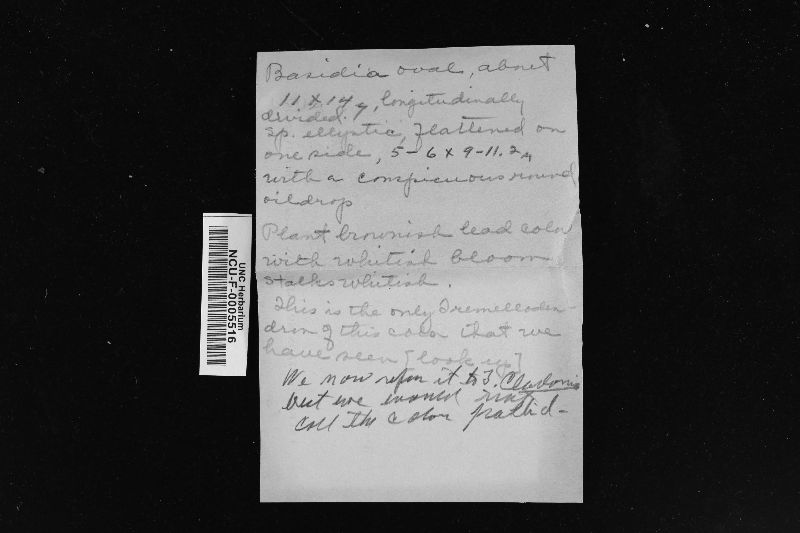 Basidia oval, about
11 x 14 µ, longitudinally
divided.
Sp. elliptic, flattened on
one side, 5-6 x 9-11.2 µ
with a conspicuous round
oildrop
Plant brownish lead color
with whitish bloom
Stalks whitish.
This is the only Tremelloden-
dron of this color that we
have seen [look up]
We now refer it to T. Cladonia
but we would not
call the color pallid-
UNC Herbarium
NCU-F-0005516